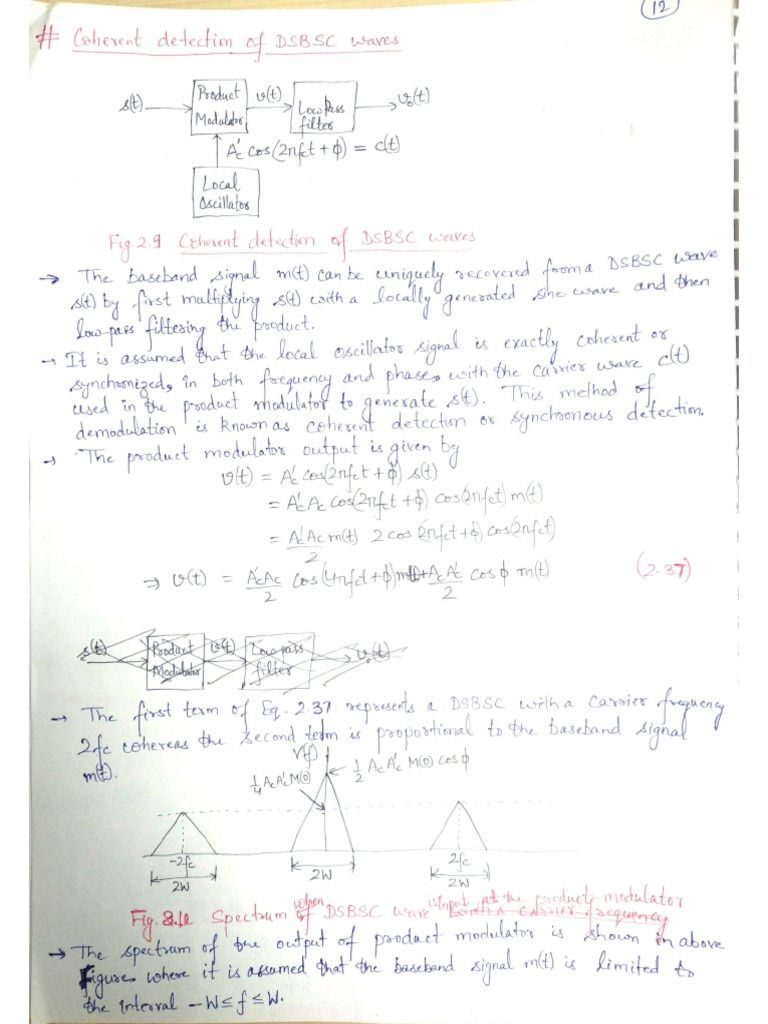 12
# Coherent detection of DSBSC waves
s(t) Product Modulator v(t) Low Pass filter v₀(t)
A'c cos(2πfct + ϕ) = c(t)
Local Oscillator
Fig. 2.9 Coherent detection of DSBSC waves
→ The baseband signal m(t) can be uniquely recovered from a DSBSC wave
s(t) by first multiplying s(t) with a locally generated sine wave and then
low-pass filtering the product.
→ It is assumed that the local oscillator signal is exactly coherent or
synchronized, in both frequency and phase, with the carrier wave c(t)
used in the product modulator to generate s(t). This method of
demodulation is known as coherent detection or synchronous detection.
→ The product modulator output is given by
v(t) = A'c cos(2πfct + ϕ) s(t)
= A'c Ac cos(2πfct + ϕ) cos(2πfct) m(t)
= A'cAc/2 m(t) 2 cos(2πfct + ϕ) cos(2πfct)
→ v(t) = A'cAc/2 cos(4πfct + ϕ) m(t) + AcA'c/2 cosϕ m(t) (2.37)
s(t) Product Modulator v(t) Low pass filter v₀(t)
→ The first term of Eq. 2.37 represents a DSBSC with a carrier frequency
2fc whereas the second term is proportional to the baseband signal
m(t).
V(f)
1/4 AcA'c M(0)
1/2 AcA'c M(0) cosϕ
-2fc
2fc
2W
2W
2W
when is input at the product modulator
Fig. 2.10 Spectrum of DSBSC wave with a carrier frequency
→ The spectrum of the output of product modulator is shown in above
Figure, where it is assumed that the baseband signal m(t) is limited to
the interval -W ≤ f ≤ W.